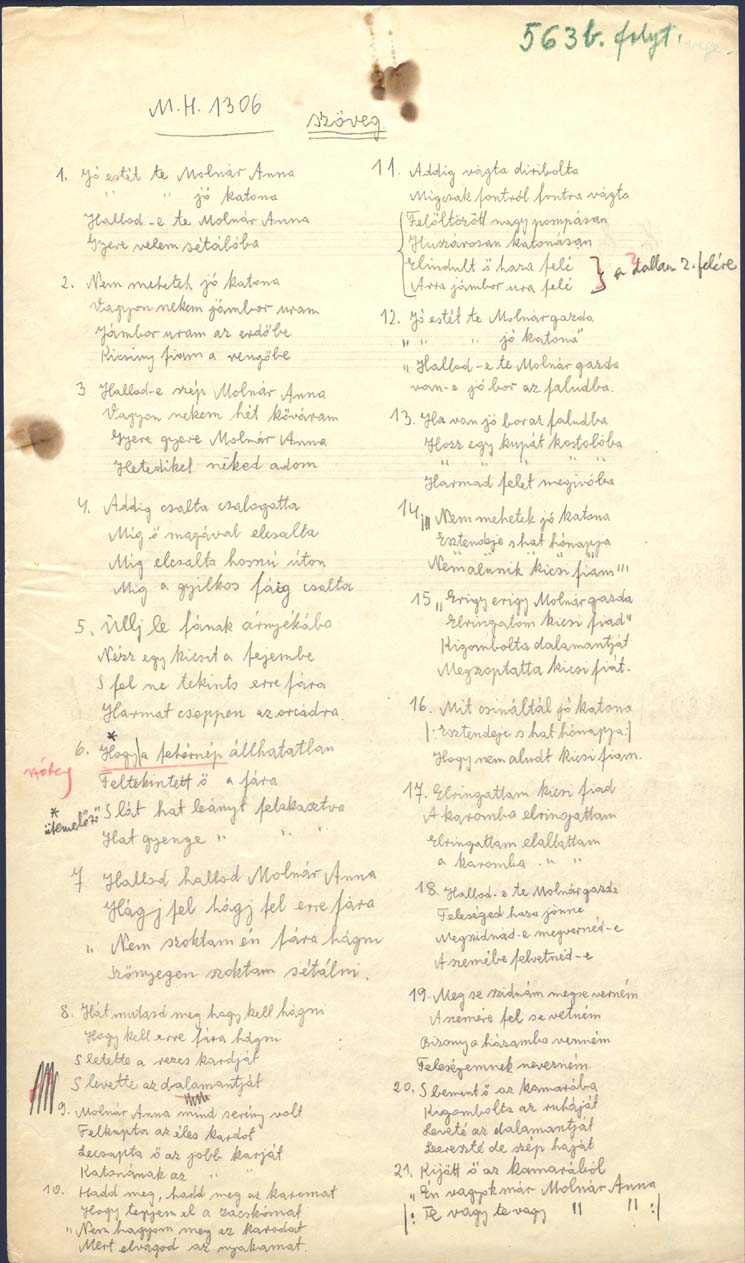 563b. folyt.
M.H. 1306
szöveg
1. Jó estét te Molnár Anna
" " jó katona
Hallod-e te Molnár Anna
Gyere velem sétálóba
2. Nem mehetek jó katona
Vagyon nekem jámbor uram
Jámbor uram az erdőbe
Kicsiny fiam a rengőbe
3 Hallod-e szép Molnár Anna
Vagyon nekem hét kőváram
Gyere gyere Molnár Anna
Hetediket néked adom
4. Addig csalta csalogatta
Míg ő magával elcsalta
Míg elcsalta hosszú úton
Míg a gyilkos fáig csalta
5. Ülj le fának árnyékába
Nézz egy kicsit a fejembe
S fel ne tekints erre fára
Harmat cseppen az orcádra.
6. Hogy * a fehérnép állhatatlan
Feltekintett ő a fára
* ütemelőző
S lát hat leányt felakasztva
Hat gyenge " " "
7. Hallod hallod Molnár Anna
Hágj fel hágj fel erre fára
" Nem szoktam én fára hágni
Szőnyegen szoktam sétálni.
8. Hát mutasd meg hogy kell hágni
Hogy kell erre fára hágni
S letette a rezes kardját
S levette az dalamantját
9. Molnár Anna mind serény volt
Felkapta az éles kardot
Lecsapta ő az jobb karját
Katonának az " "
10. Hadd meg, hadd meg az karomat
Hogy terjem el a zacskómat
" Nem hagyom meg az karodat
Mert elvágod az nyakamat.
11. Addig vágta diribolta
Migcsak fontról fontra vágta
Felöltözött nagy pompásan
Huszárosan katonásan
Elindult ő haza felé
Arra jámbor ura felé
} a dallam 2. felére
12. Jó estét te Molnár gazda
" " " jó katona"
" Hallod-e te Molnár gazda
van-e jó bor az faludba.
13. Ha van jó bor az faludba
Hozz egy kupát kostolóba
" " " "
Harmad felet megivóba
14. "Nem mehetek jó katona
Esztendeje s hat hónapja
" " "
Nem alunnik kicsi fiam"
15 "Erigy erigy Molnár gazda
Elringatom kicsi fiad"
Kigombolta dalamantját
Megszoptatta kicsi fiát.
16. Mit csináltál jó katona
|: Esztendeje s hat hónapja :|
Hogy nem aludt kicsi fiam.
17. Elringattam kicsi fiad
A karomba elringattam
Elringattam elaltattam
a karomba " "
18. Hallod-e te Molnár gazda
Feleséged haza jönne
Megszidnád-e megvernéd-e
A szemébe felvetnéd-e
19. Meg se szidnám meg se verném
A szemére fel se vetném
Bizony a házamba venném
Feleségemnek nevezném.
20. S bement ő az kamarába
Kigombolta az ruháját
Leveté az dalamantját
Leereszté de szép haját
21. Kijött ő az kamarából
"Én vagyok már Molnár Anna
|: Te vagy te vagy " " :|